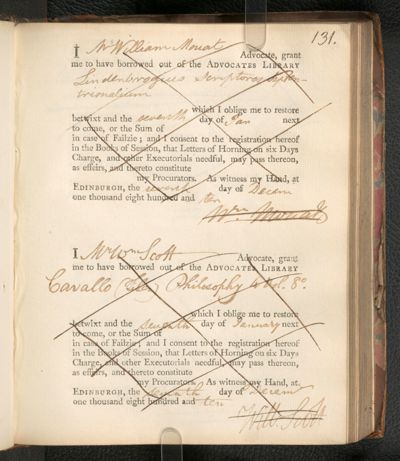 131.
I Mr William Mouat Advocate, grant
me to have borrowed out of the ADVOCATES LIBRARY
Lindenbrogius Scriptores Septen-
trionalium
which I oblige me to restore
betwixt and the seventh day of Jan next
to come, or the Sum of
in case of Failzie; and I consent to the registration hereof
in the Books of Session, that Letters of Horning on six Days
Charge, and other Executorials needful, may pass thereon,
as effeirs, and thereto constitute
my Procurators. As witness my Hand, at
EDINBURGH, the seventh day of Decem
one thousand eight hundred and ten
Wm Mouat
I Mr Wm Scott Advocate, grant
me to have borrowed out of the ADVOCATES LIBRARY
Cavallo Philosophy 4 Vol. 8o.
which I oblige me to restore
betwixt and the seventh day of January next
to come, or the Sum of
in case of Failzie; and I consent to the registration hereof
in the Books of Session, that Letters of Horning on six Days
Charge, and other Executorials needful, may pass thereon,
as effeirs, and thereto constitute
my Procurators. As witness my Hand, at
EDINBURGH, the seventh day of Decem
one thousand eight hundred and ten
Will. Scott